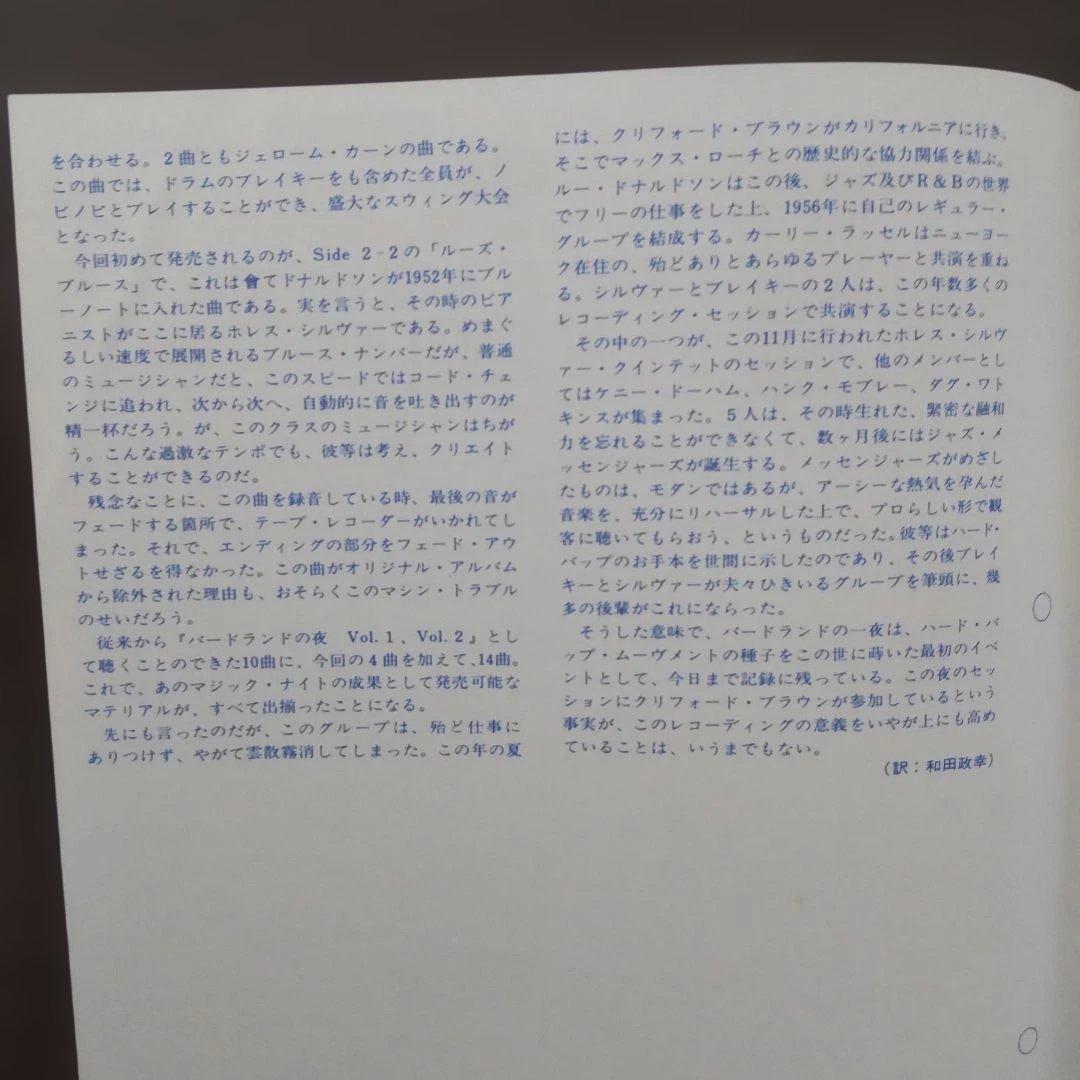 を合わせる。2曲ともジェローム・カーンの曲である。
この曲では、ドラムのブレイキーをも含めた全員が、ノ
ビノビとプレイすることができ、盛大なスウィング大会
となった。
今回初めて発売されるのが、Side 2-2の「ルーズ・
ブルース」で、これは會てドナルドソンが1952年にブル
ーノートに入れた曲である。実を言うと、その時のピア
ニストがここに居るホレス・シルヴァーである。めまぐ
るしい速度で展開されるブルース・ナンバーだが、普通
のミュージシャンだと、このスピードではコード・チェ
ンジに追われ、次から次へ、自動的に音を吐き出すのが
精一杯だろう。が、このクラスのミュージシャンはちが
う。こんな過激なテンポでも、彼等は考え、クリエイト
することができるのだ。
残念なことに、この曲を録音している時、最後の音が
フェードする箇所で、テープ・レコーダーがいかれてし
まった。それで、エンディングの部分をフェード・アウ
トせざるを得なかった。この曲がオリジナル・アルバム
から除外された理由も、おそらくこのマシン・トラブル
のせいだろう。
従来から『バードランドの夜 Vol.1、Vol.2』とし
て聴くことのできた10曲に、今回の4曲を加えて、14曲。
これで、あのマジック・ナイトの成果として発売可能な
マテリアルが、すべて出揃ったことになる。
先にも言ったのだが、このグループは、殆ど仕事に
ありつけず、やがて雲散霧消してしまった。この年の夏
には、クリフォード・ブラウンがカリフォルニアに行き、
そこでマックス・ローチとの歴史的な協力関係を結ぶ。
ルー・ドナルドソンはこの後、ジャズ及びR&Bの世界
でフリーの仕事をした上、1956年に自己のレギュラー・
グループを結成する。カーリー・ラッセルはニューヨー
ク在住の、殆どありとあらゆるプレーヤーと共演を重ね
る。シルヴァーとブレイキーの2人は、この年数多くの
レコーディング・セッションで共演することになる。
その中の一つが、この11月に行われたホレス・シルヴ
ァー・クインテットのセッションで、他のメンバーとし
てはケニー・ドーハム、ハンク・モブレー、ダグ・ワト
キンスが集まった。5人は、その時生れた、緊密な融和
力を忘れることができなくて、数ヶ月後にはジャズ・メ
ッセンジャーズが誕生する。メッセンジャーズがめざし
たものは、モダンではあるが、アーシーな熱気を孕んだ
音楽を、充分にリハーサルした上で、プロらしい形で観
客に聴いてもらおう、というものだった。彼等はハード・
バップのお手本を世間に示したのであり、その後ブレイ
キーとシルヴァーが夫々ひきいるグループを筆頭に、幾
多の後輩がこれにならった。
そうした意味で、バードランドの一夜は、ハード・バ
ップ・ムーヴメントの種子をこの世に蒔いた最初のイベ
ントとして、今日まで記録に残っている。この夜のセッ
ションにクリフォード・ブラウンが参加しているという
事実が、このレコーディングの意義をいやが上にも高め
ていることは、いうまでもない。
(訳：和田政幸)